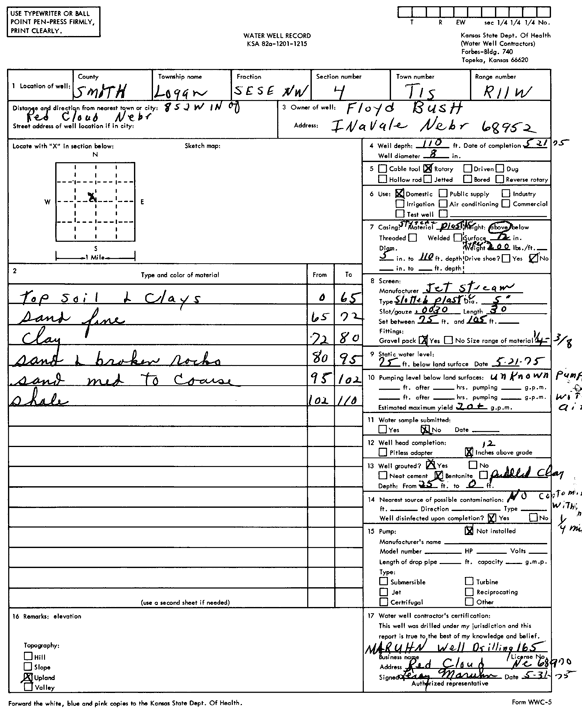 USE TYPEWRITER OR BALL
POINT PEN-PRESS FIRMLY,
PRINT CLEARLY.
WATER WELL RECORD
KSA 82a-1201-1215
T R EW sec 1/4 1/4 1/4 No.
Kansas State Dept. Of Health
(Water Well Contractors)
Forbes-Bldg. 740
Topeka, Kansas 66620
1 Location of well: County Township name Fraction Section number Town number Range number
Smith Logan SESE NW 4 T1S R11W
Distance and direction from nearest town or city: 8S 2W 1N of
Red Cloud Nebr
Street address of well location if in city:
3 Owner of well: Floyd Bush
Address: INavale Nebr 68952
Locate with "X" in section below: Sketch map:
N
W E
S
1 Mile
4 Well depth: 110 ft. Date of completion 5 21 75
Well diameter 8 in.
5 Cable tool X Rotary Driven Dug
Hollow rod Jetted Bored Reverse rotary
6 Use: X Domestic Public supply Industry
Irrigation Air conditioning Commercial
Test well
7 Casing: Material plastic Height: above/below
Threaded Welded Surface 12 in.
Diam. Weight 200 lbs./ft.
5 in. to 110 ft. depth Drive shoe? Yes X No
in. to ft. depth
8 Screen:
Manufacturer Jet Stream
Type Slotted plastic Dia. 5"
Slot/gauze .0030 Length 30
Set between 75 ft. and 105 ft.
Fittings:
Gravel pack X Yes No Size range of material 1/4 - 3/8
9 Static water level:
75 ft. below land surface Date 5-21-75
10 Pumping level below land surfaces: unknown Pump
ft. after hrs. pumping g.p.m. wit
ft. after hrs. pumping g.p.m. ai
Estimated maximum yield 20+ g.p.m.
11 Water sample submitted:
Yes X No Date
12 Well head completion: 12
Pitless adapter X Inches above grade
13 Well grouted? X Yes No
Neat cement X Bentonite puddled Clay
Depth: From 25 ft. to 0 ft.
14 Nearest source of possible contamination: No
ft. Direction Type within
Well disinfected upon completion? X Yes No 1/4 mi
15 Pump: X Not installed
Manufacturer's name
Model number HP Volts
Length of drop pipe ft. capacity g.m.p.
Type:
Submersible Turbine
Jet Reciprocating
Certrifugal Other
2 Type and color of material From To
Top soil & Clays 0 65
sand fine 65 72
Clay 72 80
sand & broken rocks 80 95
sand med to Coarse 95 102
shale 102 110
(use a second sheet if needed)
16 Remarks: elevation
Topography:
Hill
Slope
X Upland
Valley
17 Water well contractor's certification:
This well was drilled under my jurisdiction and this
report is true to the best of my knowledge and belief.
MARUHN Well Drilling 165
Business name License No.
Address Red Cloud Ne 68970
Signed Leroy Maruhn Date 5-31-75
Authorized representative
Forward the white, blue and pink copies to the Kansas State Dept. Of Health.
Form WWC-5